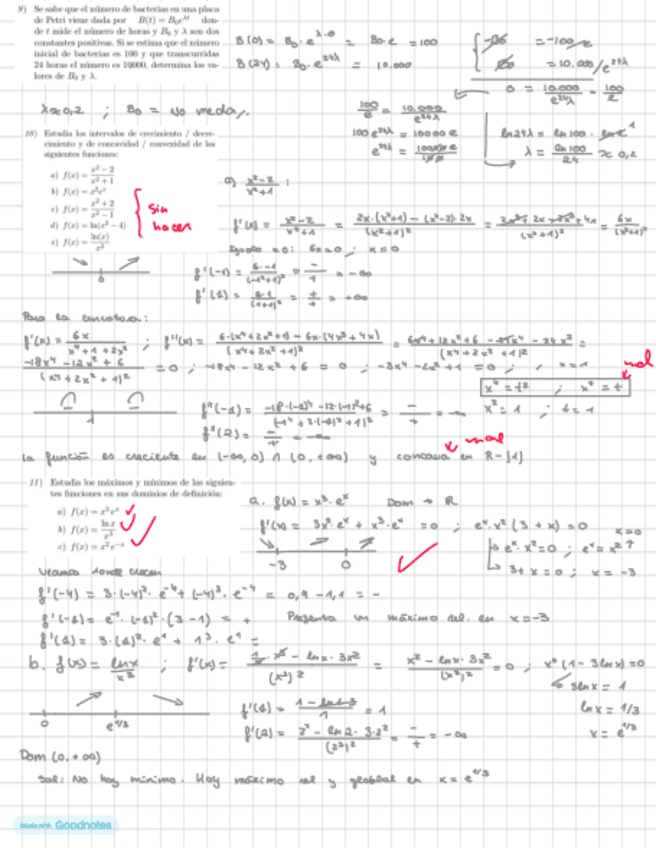 9) Se sabe que el número de bacterias en una placa
de Petri viene dada por B(t) = B₀e^{λt} don-
de t mide el número de horas y B₀ y λ son dos
constantes positivas. Si se estima que el número
inicial de bacterias es 100 y que transcurridas
24 horas el número es 10000, determina los va-
lores de B₀ y λ.
B(0) = B₀·e^{λ·0} = B₀·e = 100
B(24): B₀·e^{24λ} = 10.000
0 = 10.000/e^{24λ} - 100/e
100/e = 10.000/e^{24λ}
100 e^{24λ} = 10000 e
λ = ln 100/24 ≈ 0,2
λ ≈ 0,2 ; B₀ = No me da
10) Estudia los intervalos de crecimiento / decre-
cimiento y de concavidad / convexidad de las
siguientes funciones:
a) f(x) = (x²-2)/(x²+1)
b) f(x) = x²eˣ
c) f(x) = (x²+2)/(x²-1)
d) f(x) = ln(x²-4)
e) f(x) = ln(x)/x²
sin
hacer
a) (x²-2)/(x²+1) :
f'(x) = (x²-2)/(x²+1) = (2x·(x²+1) - (x²-2)·2x)/(x²+1)² = (2x³ + 2x - 2x³ + 4x)/(x²+1)² = 6x/(x²+1)²
Igualo a 0: 6x = 0 ; x = 0
0
f'(-1) = 6·-1/(-1²+1)² = -/+ = -∞
f'(1) = 6·1/(1+1)² = +/+ = +∞
Para la curvatura:
f'(x) = 6x/(x⁴+1+2x²) ; f''(x) = (6·(x⁴+2x²+1) - 6x·(4x³+4x))/(x⁴+2x²+1)² = (6x⁴+12x²+6 - 24x⁴ - 24x²)/(x⁴+2x²+1)² =
(-18x⁴ - 12x² + 6)/(x⁴+2x²+1)² = 0 ; -18x⁴ - 12x² + 6 = 0 ; -3x⁴ - 2x² + 1 = 0 ; x = 1
mal
x⁴ = t² ; x² = t
x² = 1 ; t = 1
1
f''(-1) = (-18·(-1)⁴ - 12·(-1)² + 6)/(-1⁴ + 2·(-1)² + 1)² = -/+ = -∞
f''(2) = -/+ = -∞
mal
La función es creciente en (-∞, 0) ∧ (0, +∞) y concava en R - {1}
11) Estudia los máximos y mínimos de las siguien-
tes funciones en sus dominios de definición:
a) f(x) = x³eˣ
b) f(x) = ln x/x³
c) f(x) = x²e⁻ˣ
a. f(x) = x³·eˣ Dom → R
f'(x) = 3x²·eˣ + x³·eˣ = 0 ; eˣ·x²(3 + x) = 0
x = 0
eˣ·x² = 0 ; eˣ = x² ?
3 + x = 0 ; x = -3
-3 0
Veamos donde crecen
f'(-4) = 3·(-4)²·e⁻⁴ + (-4)³·e⁻⁴ = 0,9 - 1,1 = -
f'(-1) = e⁻¹·(-1)²·(3 - 1) = + Presenta un máximo rel. en x = -3
f'(1) = 3·(1)²·e¹ + 1³·e¹ =
b. f(x) = ln x/x³ ; f'(x) = (1/x·x³ - ln x·3x²)/(x³)² = (x² - ln x·3x²)/(x³)² = 0 ; x²(1 - 3 ln x) = 0
3 ln x = 1
ln x = 1/3
x = e^{1/3}
0 e^{1/3}
f'(1) = (1 - ln 1·3)/1 = 1
f'(2) = (2² - ln 2·3·2²)/(2³)² = -/+ = -∞
Dom (0, +∞)
Sol: No hay mínimo. Hay máximo rel y global en x = e^{1/3}
Made with Goodnotes